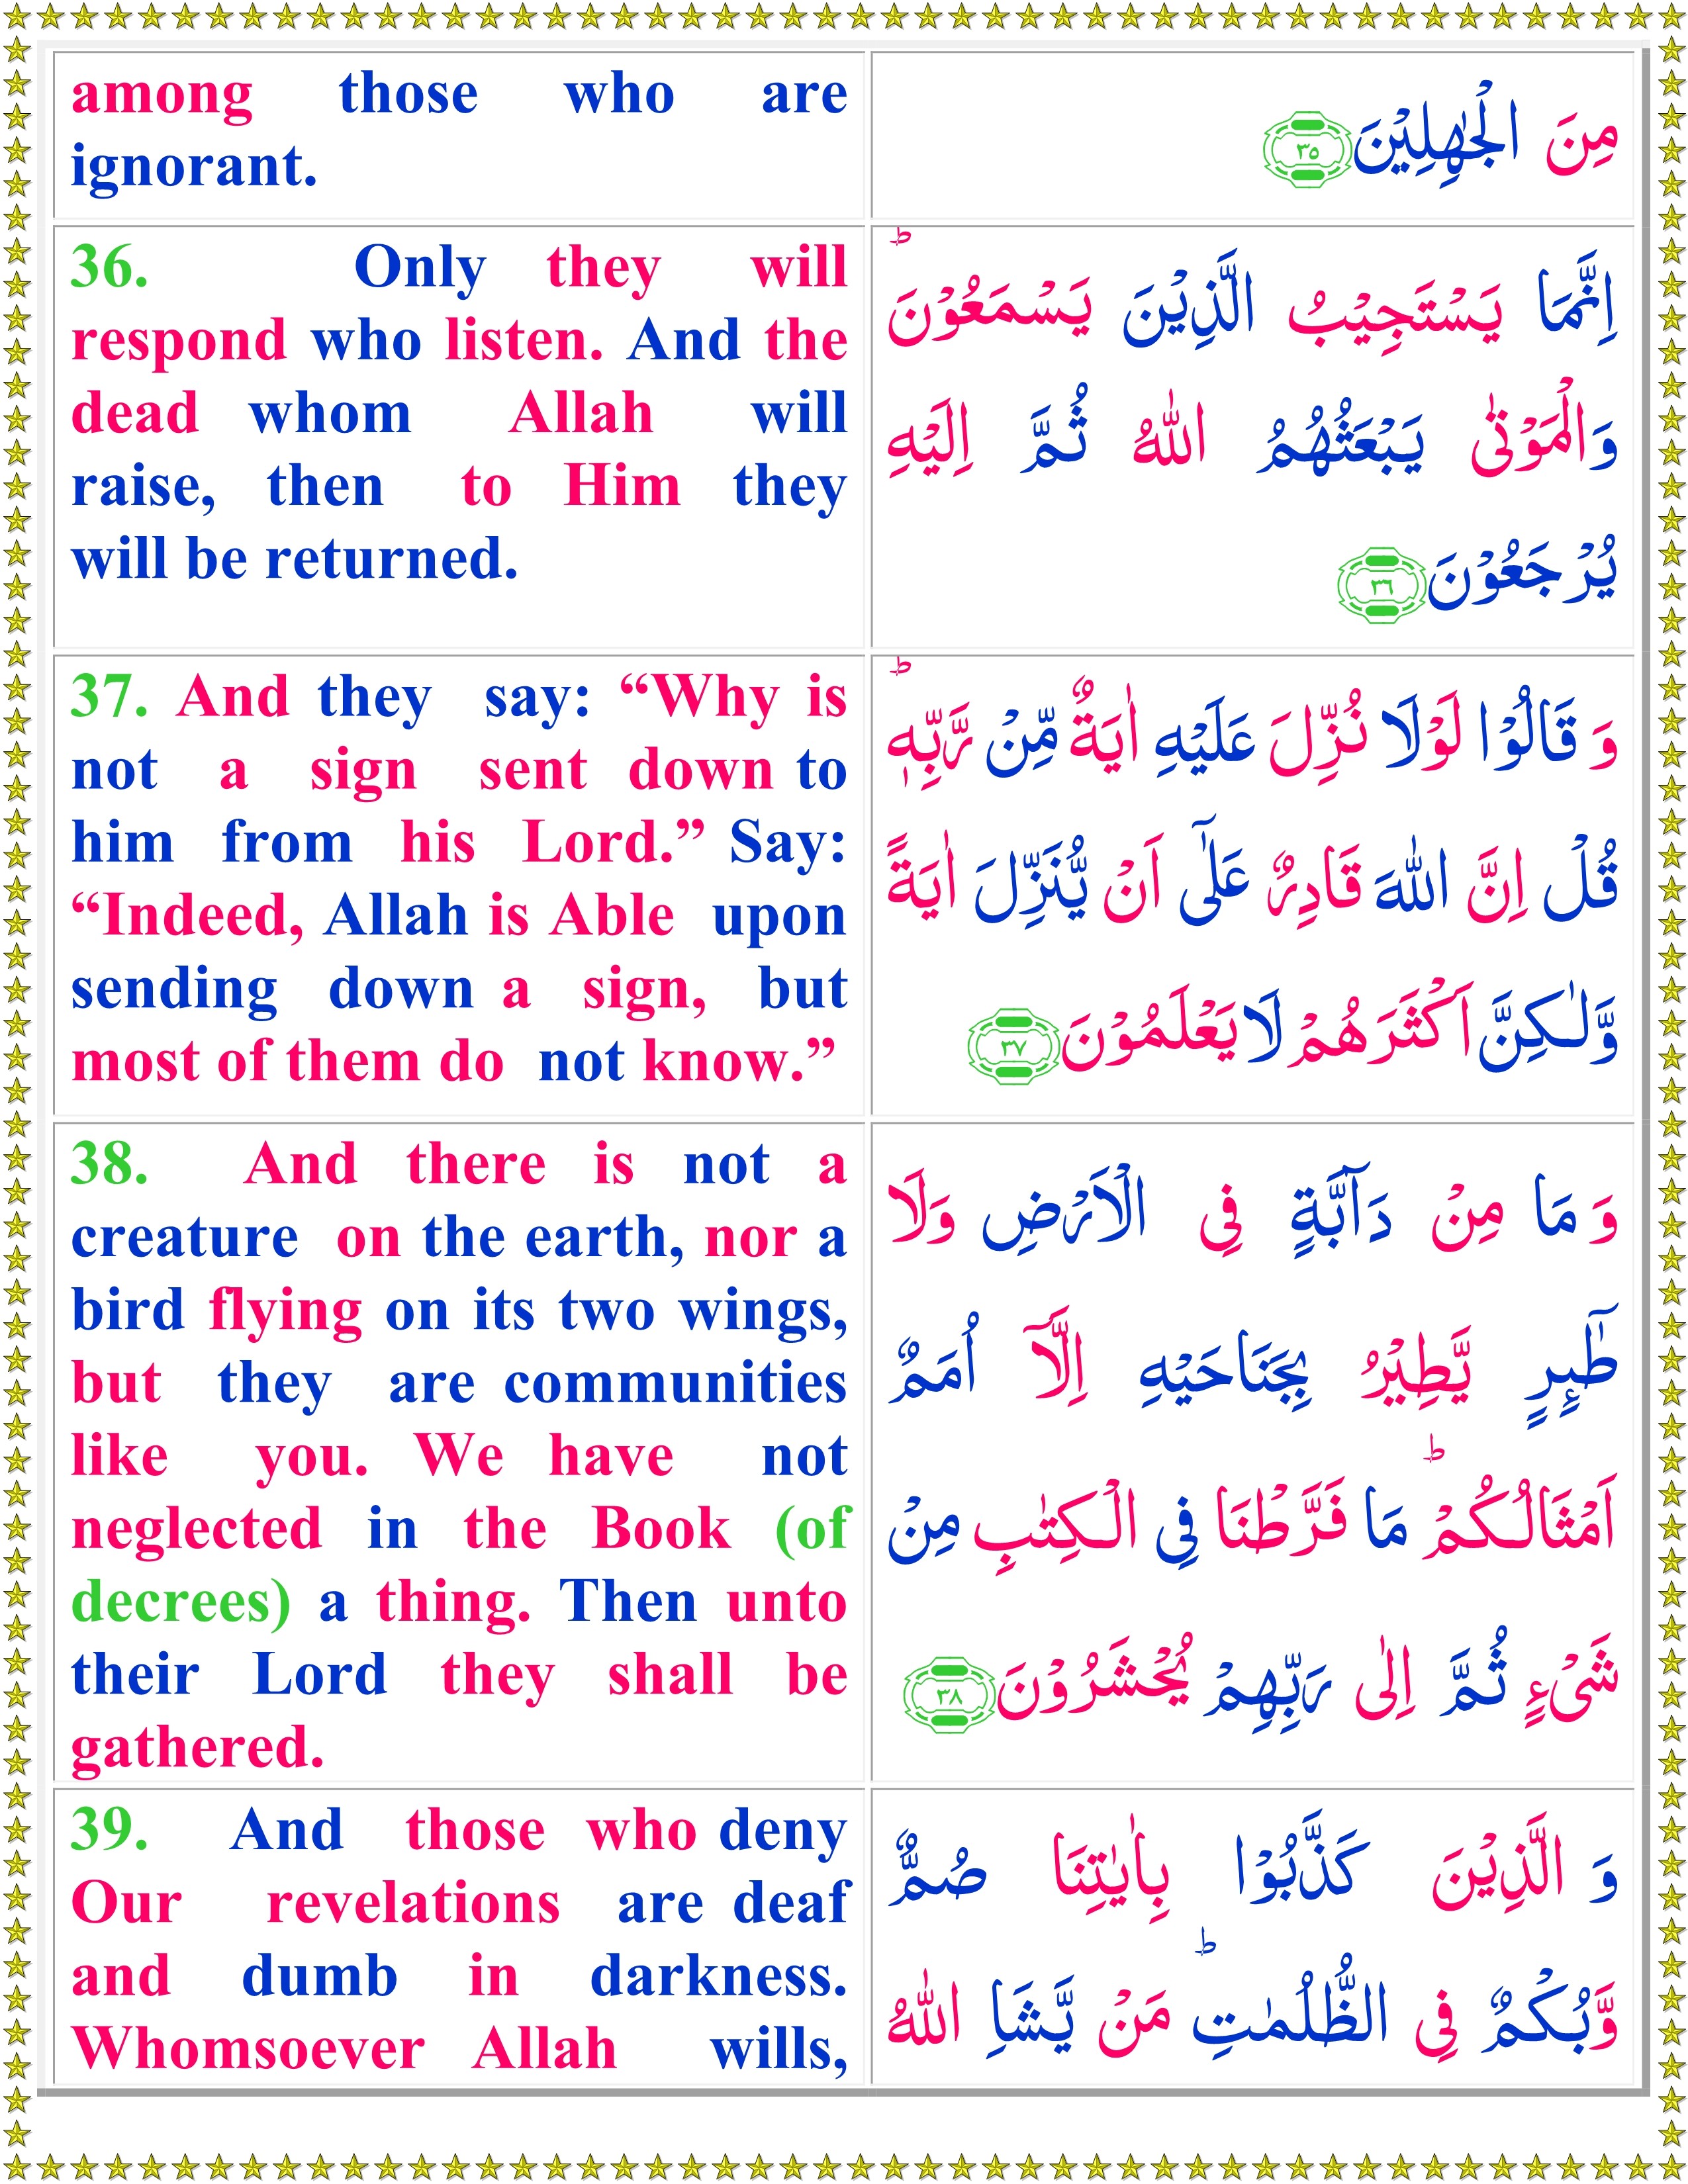 among those who are
ignorant.
مِنَ الۡجٰهِلِيۡنَ ﴿۳۵﴾
36. Only they will
respond who listen. And the
dead whom Allah will
raise, then to Him they
will be returned.
اِنَّمَا يَسۡتَجِيۡبُ الَّذِيۡنَ يَسۡمَعُوۡنَ ؕ
وَالۡمَوۡتٰى يَبۡعَثُهُمُ اللّٰهُ ثُمَّ اِلَيۡهِ
يُرۡجَعُوۡنَ ﴿۳۶﴾
37. And they say: “Why is
not a sign sent down to
him from his Lord.” Say:
“Indeed, Allah is Able upon
sending down a sign, but
most of them do not know.”
وَ قَالُوۡا لَوۡلَا نُزِّلَ عَلَيۡهِ اٰيَةٌ مِّنۡ رَّبِّهٖ ؕ
قُلۡ اِنَّ اللّٰهَ قَادِرٌ عَلٰٓى اَنۡ يُّنَزِّلَ اٰيَةً
وَّلٰـكِنَّ اَكۡثَرَهُمۡ لَا يَعۡلَمُوۡنَ ﴿۳۷﴾
38. And there is not a
creature on the earth, nor a
bird flying on its two wings,
but they are communities
like you. We have not
neglected in the Book (of
decrees) a thing. Then unto
their Lord they shall be
gathered.
وَ مَا مِنۡ دَآبَّةٍ فِى الۡاَرۡضِ وَلَا
طٰٓٮِٕرٍ يَّطِيۡرُ بِجَنَاحَيۡهِ اِلَّاۤ اُمَمٌ
اَمۡثَالُـكُمۡ ؕ مَا فَرَّطۡنَا فِى الۡـكِتٰبِ مِنۡ
شَىۡءٍ ثُمَّ اِلٰى رَبِّهِمۡ يُحۡشَرُوۡنَ ﴿۳۸﴾
39. And those who deny
Our revelations are deaf
and dumb in darkness.
Whomsoever Allah wills,
وَ الَّذِيۡنَ كَذَّبُوۡا بِاٰيٰتِنَا صُمٌّ
وَّبُكۡمٌ فِى الظُّلُمٰتِ ؕ مَنۡ يَّشَاِ اللّٰهُ